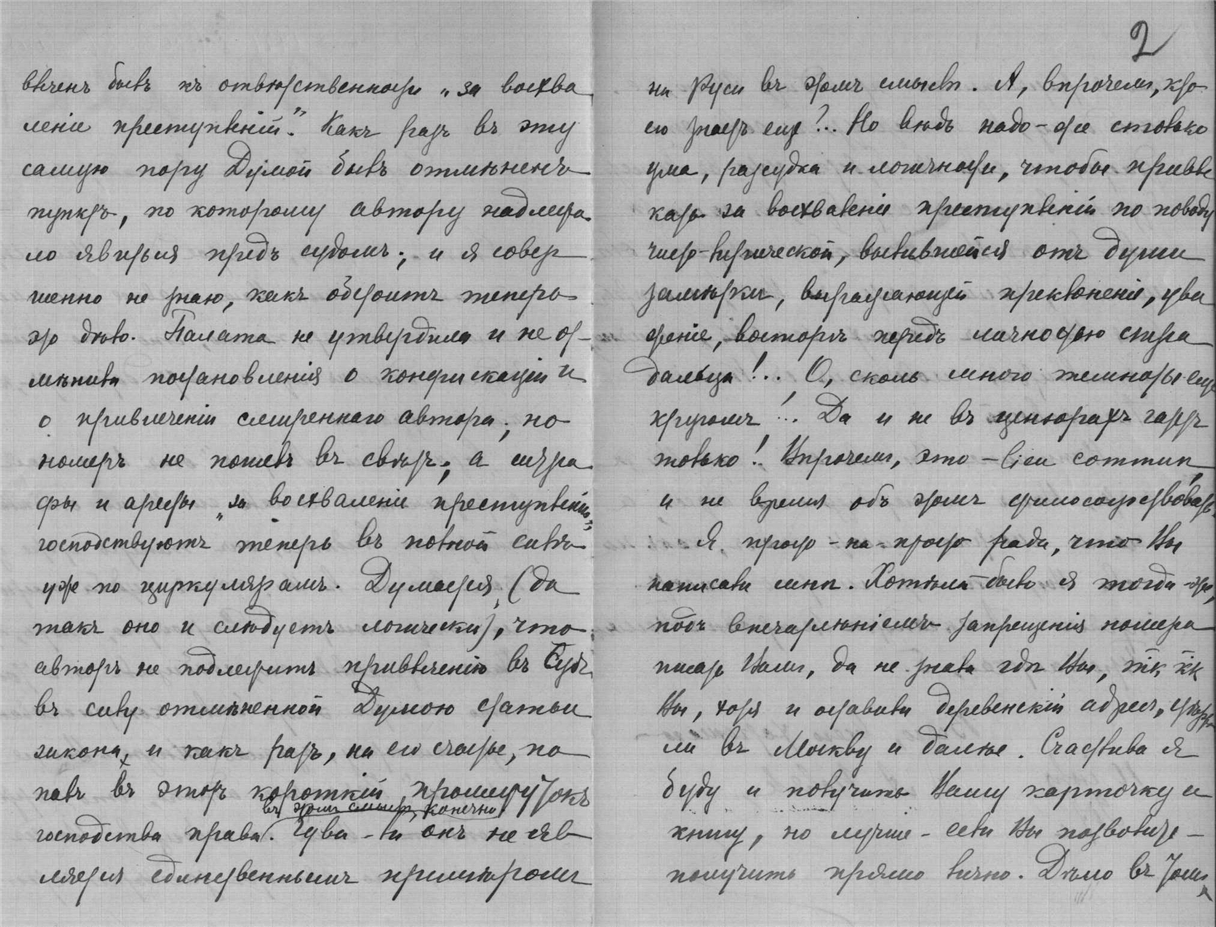 влеченъ былъ къ отвѣтственности „за восхва
леніе преступленій“. Какъ разъ въ эту
самую пору Думой былъ отмѣненъ
пунктъ, по которому автору надлежа
ло явиться предъ судомъ; и я совер
шенно не знаю, какъ обстоитъ теперь
это дѣло. Палата не утвердила и не от-
мѣнила постановленія о конфискаціи и
о привлеченіи смиреннаго автора; но
номеръ не пошелъ въ свѣтъ; а штра
фы и аресты „за восхваленіе преступленій“
господствуютъ теперь въ полной силѣ
уж по циркулярамъ. Думается, (да
такъ оно и слѣдуетъ логически), что
авторъ не подлежитъ привлеченію въ Судъ
въ силу отмѣненной Думою статьи
закона, и какъ разъ, на его счастье, по
палъ въ этотъ короткій промежутокъ
въ этомъ смыслѣ, конечно
господства права. Едва-ли онъ не яв
ляется единственнымъ примѣромъ
2
на Руси въ этомъ смыслѣ. А, впрочемъ, кто
его знаетъ еще?.. Но вѣдь надо-же столько
ума, разсудка и логичности, чтобы привле
кать за восхваленіе преступленій по поводу
чисто-лирической, вылившейся отъ души
замѣтки, выражающей преклоненіе, ува
женіе, восторгъ передъ личностью страд
дальца!.. О, сколь много темноты еще
кругомъ!.. Да и не въ цензорахъ гадъ
только! Впрочемъ, это – lieu commun,
и не время объ этомъ философствовать.
Я просто-на-просто рада, что Вы
написали мнѣ. Хотѣла-было я тогда-же,
подъ впечатлѣніемъ запрещенія номера
писать Вамъ, да не знала гдѣ Вы, тк. кк
Вы, хотя и оставили деревенскій адресъ,
ли въ Москву и далѣе. Счастлива я
буду и получить Вашу карточку и
книгу, но лучше – если Вы позволите –
получить прямо лично. Дѣло въ томъ,